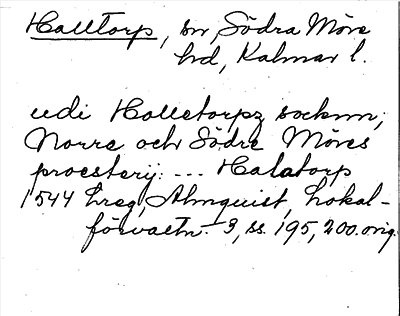 Halltorp, sn, Södra Möre
hd, Kalmar l.
udi Halletorpz socknn,
Norre och Södre Möres
proesterij. --- Halatorp
1544 hreg, Almquist, Lokal-
förvaltn. 3, ss. 195, 200. orig.